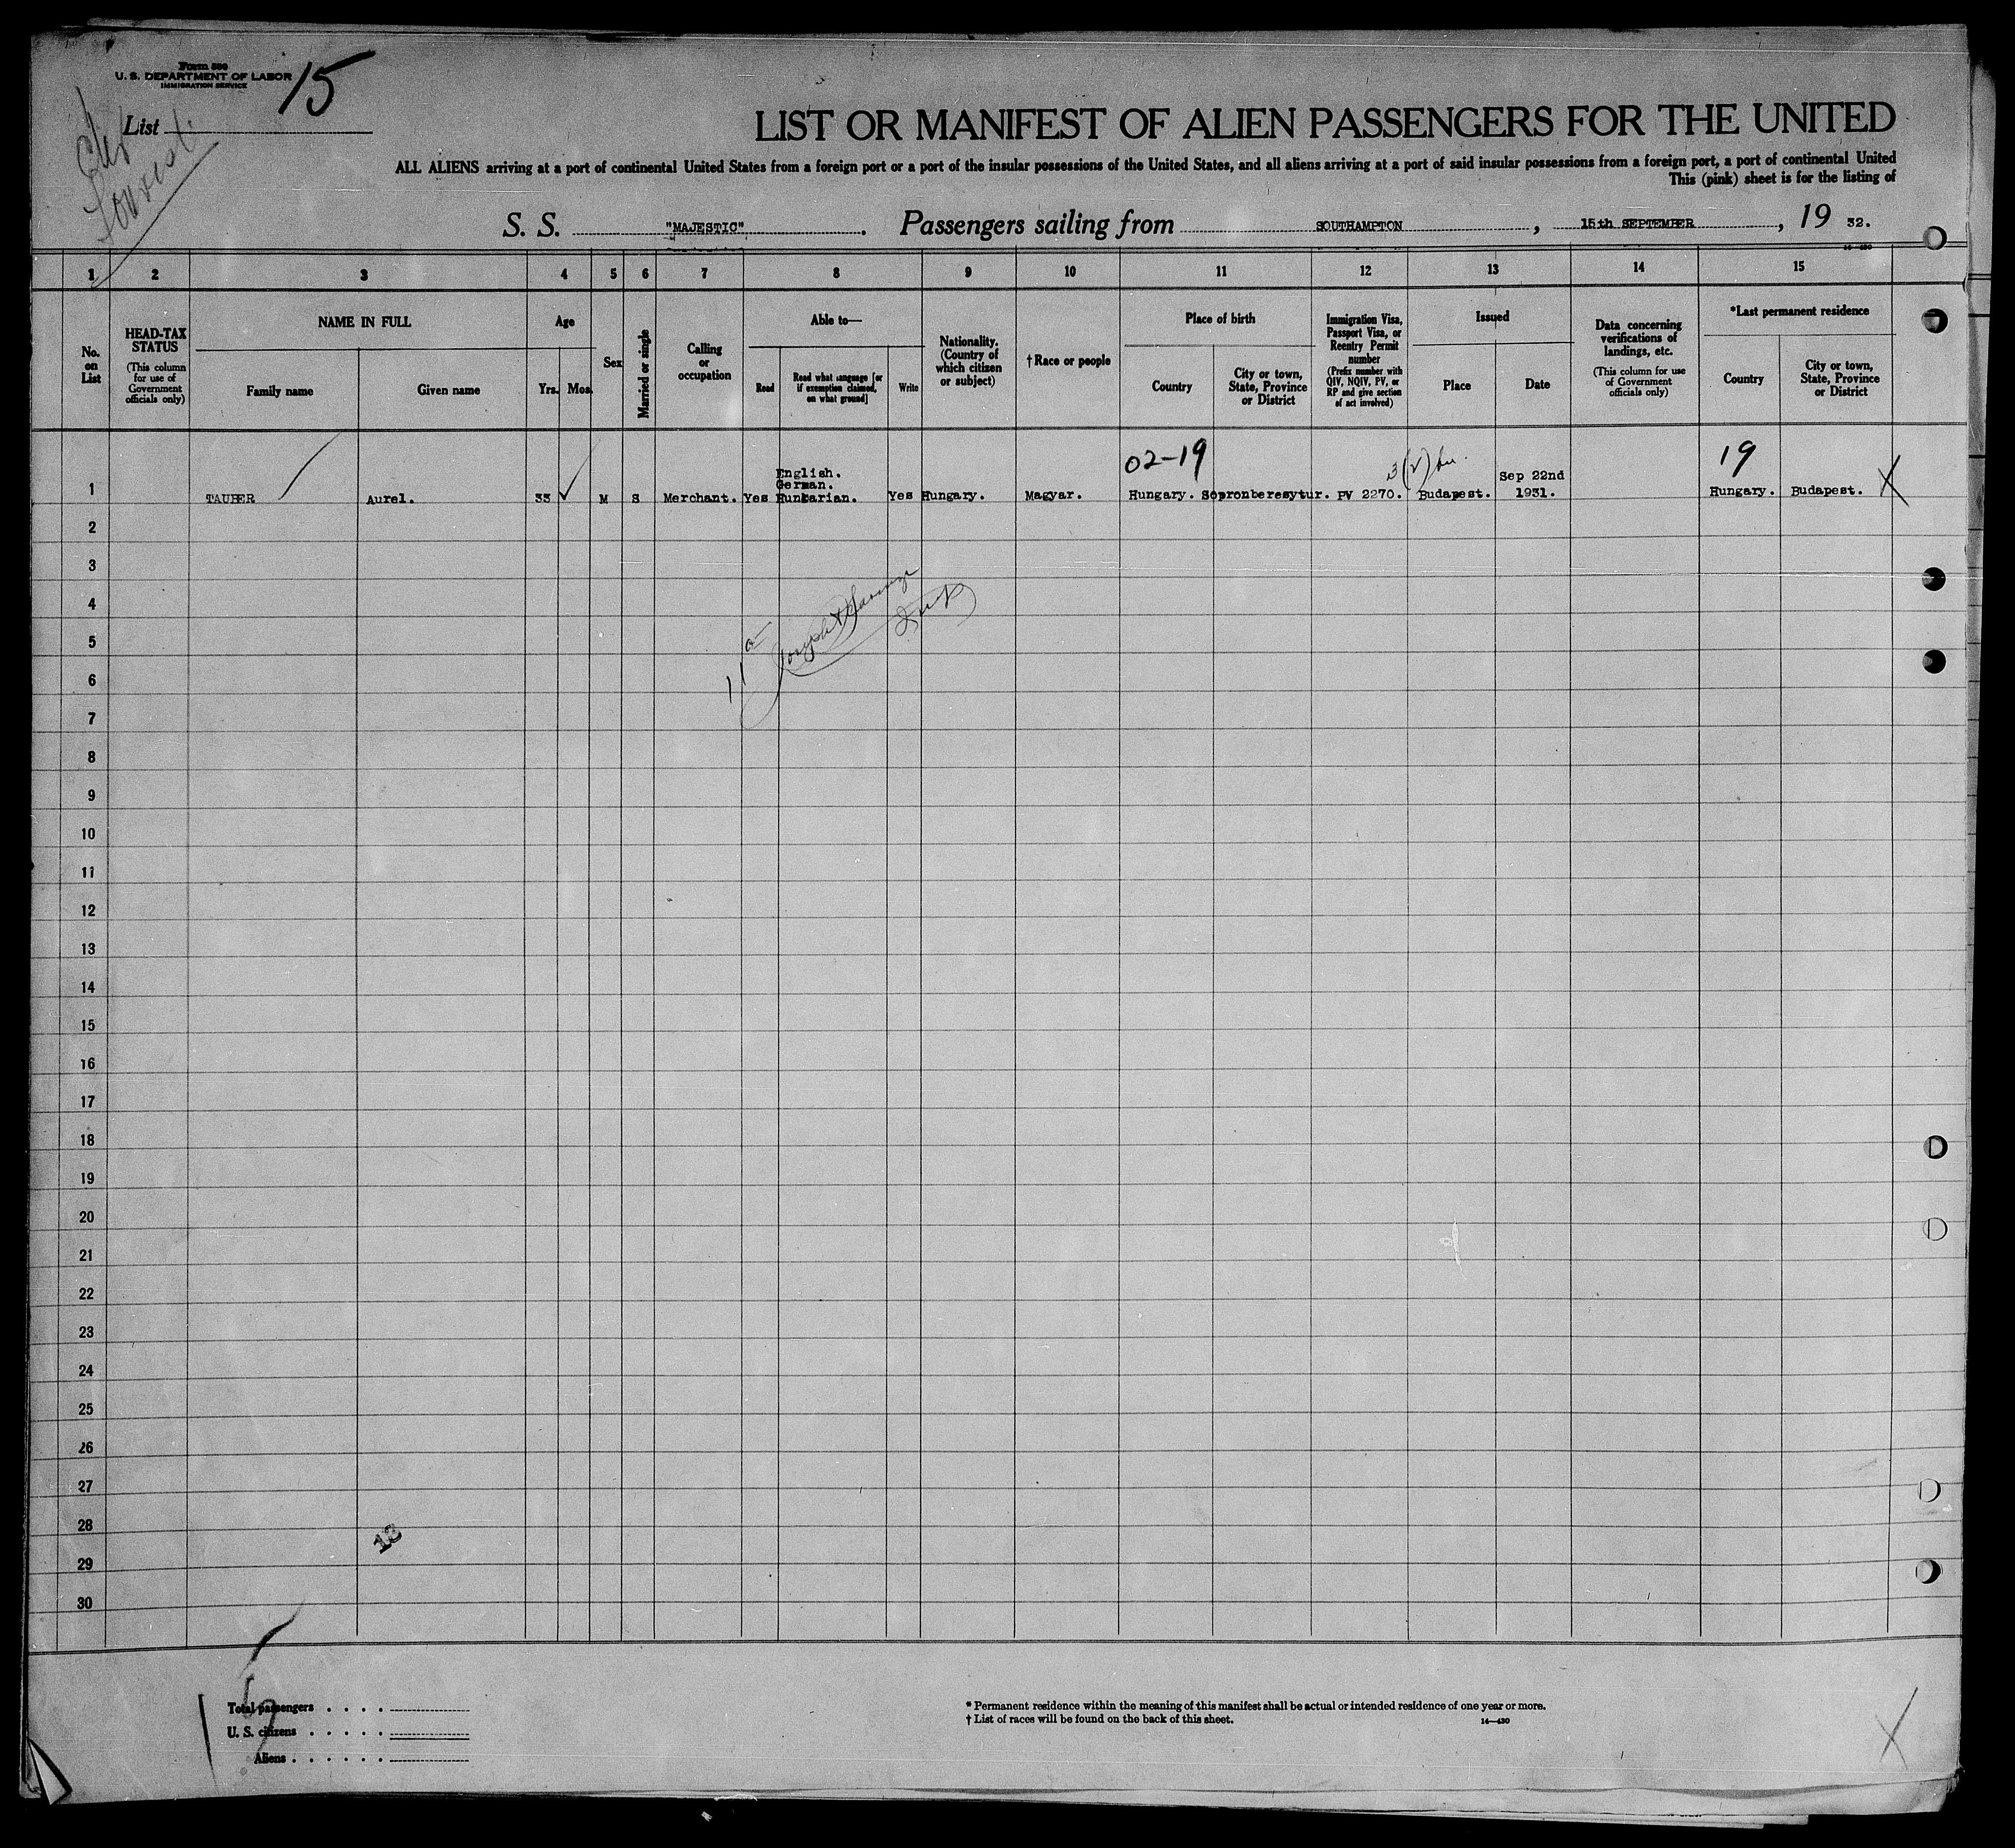 Form 500
U. S. DEPARTMENT OF LABOR
IMMIGRATION SERVICE
15
List
LIST OR MANIFEST OF ALIEN PASSENGERS FOR THE UNITED
ALL ALIENS arriving at a port of continental United States from a foreign port or a port of the insular possessions of the United States, and all aliens arriving at a port of said insular possessions from a foreign port, a port of continental United
This (pink) sheet is for the listing of
S. S. "MAJESTIC". Passengers sailing from SOUTHAMPTON, 15th SEPTEMBER, 19 32.
1 2 3 4 5 6 7 8 9 10 11 12 13 14 15
No. on List
HEAD-TAX STATUS
(This column for use of Government officials only)
NAME IN FULL
Family name
Given name
Age
Yrs. Mos.
Sex
Married or single
Calling or occupation
Able to—
Read
Read what language [or if exemption claimed, on what ground]
Write
Nationality. (Country of which citizen or subject)
†Race or people
Place of birth
Country
City or town, State, Province or District
Immigration Visa, Passport Visa, or Reentry Permit number
(Prefix number with QIV, NQIV, PV, or RP and give section of act involved)
Issued
Place
Date
Data concerning verifications of landings, etc.
(This column for use of Government officials only)
*Last permanent residence
Country
City or town, State, Province or District
02-19
3(2)
19
1 TAUBER Aurel. 33 M S Merchant. Yes English. German. Hungarian. Yes Hungary. Magyar. Hungary. Sopronberesytur. PV 2270. Budapest. Sep 22nd 1931. Hungary. Budapest. X
2
3
4
5
6
7
8
9
10
11
12
13
14
15
16
17
18
19
20
21
22
23
24
25
26
27
28
29
30
13
Total passengers
U. S. citizens
Aliens
* Permanent residence within the meaning of this manifest shall be actual or intended residence of one year or more.
† List of races will be found on the back of this sheet.
14—430
X